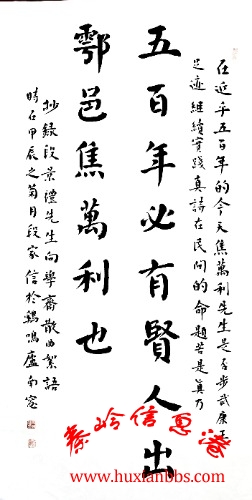 在近乎五百年的今天焦萬利先生是否步武康王
足迹继續實踐真詩在民间的命題若是真乃
五百年必有賢人出
鄠邑焦萬利也
抄錄段景禮先生向學齋散曲絮語
時在甲辰之菊月段家信於鷄鳴廬南窗
秦岭信息港
www.huxianbbs.com